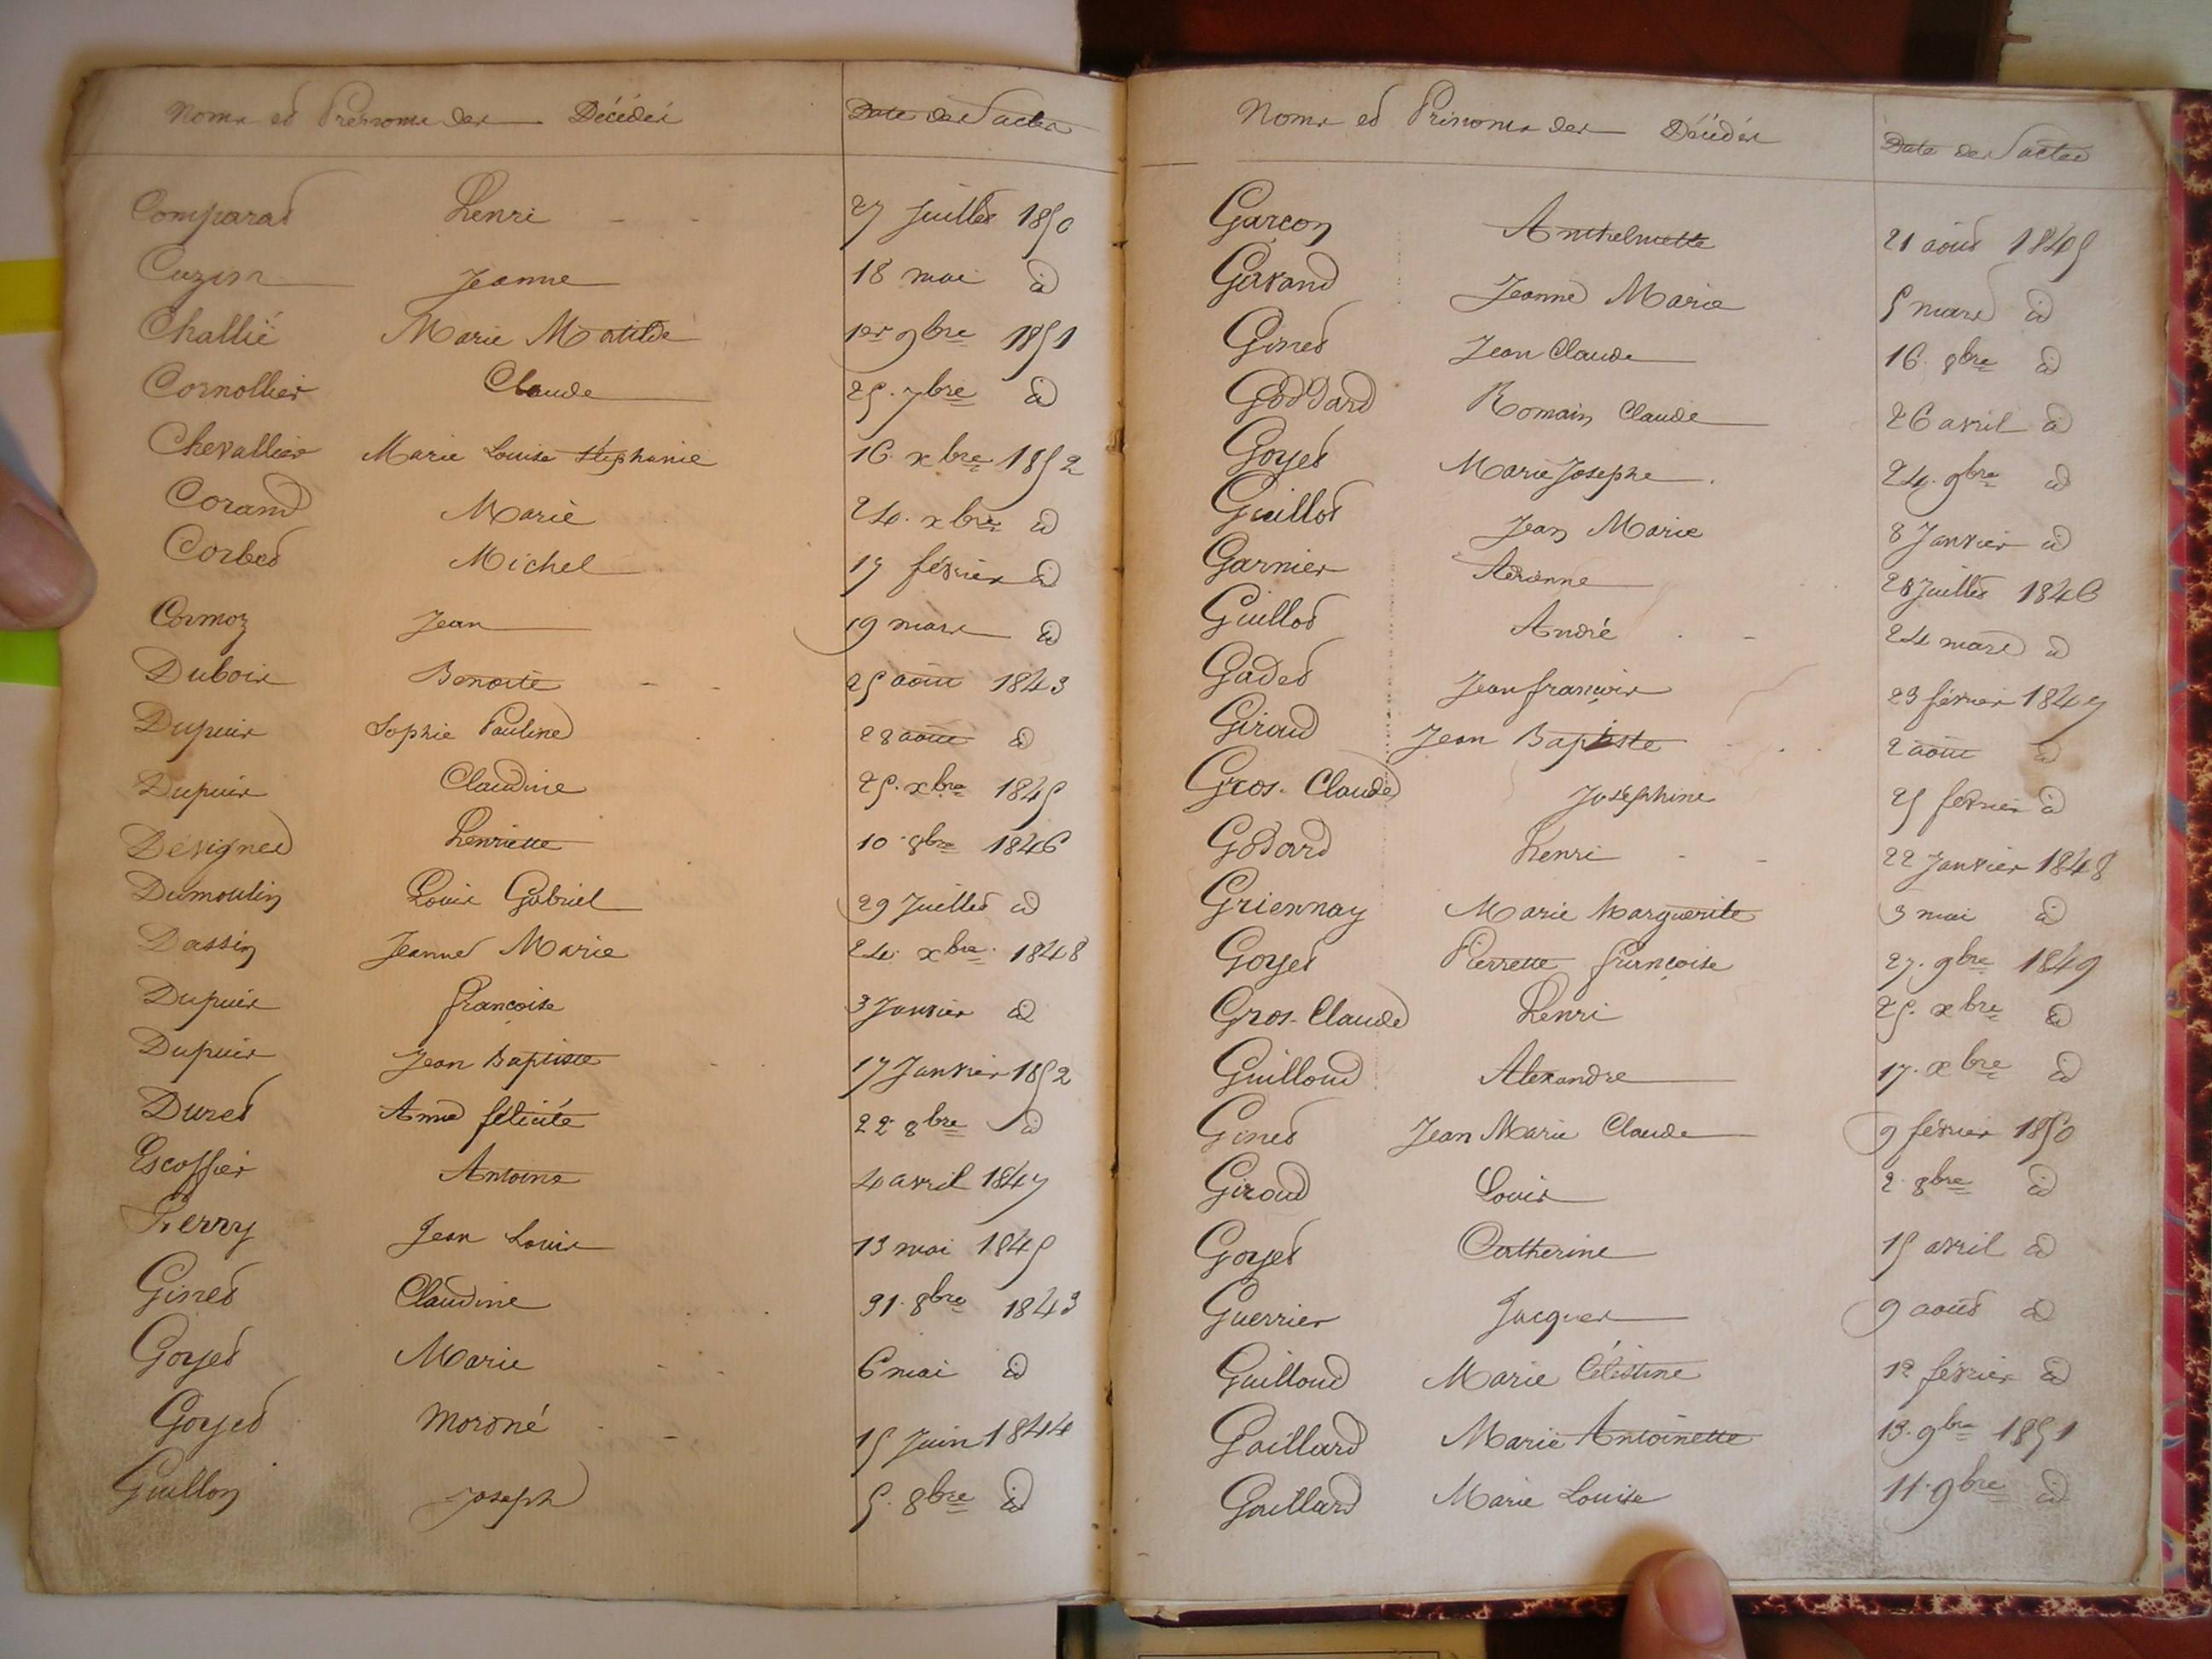 Noms et Prénoms des Décédés Date des actes
Comparat henri 27 juillet 1850
Cuzin Jeanne 18 mai id
Challié Marie Matilde 1er 9bre 1851
Cornollier Claude 25. 7bre id
Chevallier Marie Louise Stéphanie 16. xbre 1852
Corand Marie 24. xbre id
Corbet Michel 17 février id
Cormoz Jean 19 mars id
Dubois Benoite 25 août 1843
Dupuis Sophie Pauline 28 août id
Dupuis Claudine 25. xbre 1845
Dévignes henriette 10. 8bre 1846
Dumoulin Louis Gabriel 29 Juillet id
Dassin Jeanne Marie 24. xbre. 1848
Dupuis françoise 3 Janvier id
Dupuis Jean Baptiste 17 Janvier 1852
Duret Anne félicité 22. 8bre id
Escoffier Antoine 4 avril 1847
Ferry Jean Louis 13 mai 1845
Ginet Claudine 31. 8bre 1843
Goyet Marie 6 mai id
Goyet Moroné 15 Juin 1844
Guillon Joseph 5. 8bre id
Noms et Prénoms des Décédés Date des actes
Garçon Anthelmette 21 août 1845
Gavand Jeanne Marie 5 mars id
Ginet Jean Claude 16. 8bre id
Goddard Romain Claude 26 avril id
Goyet Marie Josephe 24. 9bre id
Guillot Jean Marie 8 Janvier id
Garnier Adrienne 28 Juillet 1846
Guillot André 24 mars id
Gadet Jean françois 23 février 1847
Giraud Jean Baptiste 2 août id
Gros-Claude Joséphine 25 février id
Godard henri 22 Janvier 1848
Griennay Marie Marguerite 3 mai id
Goyet Pierrette françoise 27. 9bre 1849
Gros-Claude henri 25. xbre id
Guilloud Alexandre 17. xbre id
Ginet Jean Marie Claude 9 février 1850
Giroud Louis 2. 8bre id
Goyet Catherine 15 avril id
Guerrier Jacques 9 août id
Guilloud Marie Célestine 12 février id
Gaillard Marie Antoinette 13. 9bre 1851
Gaillard Marie Louise 11. 9bre id